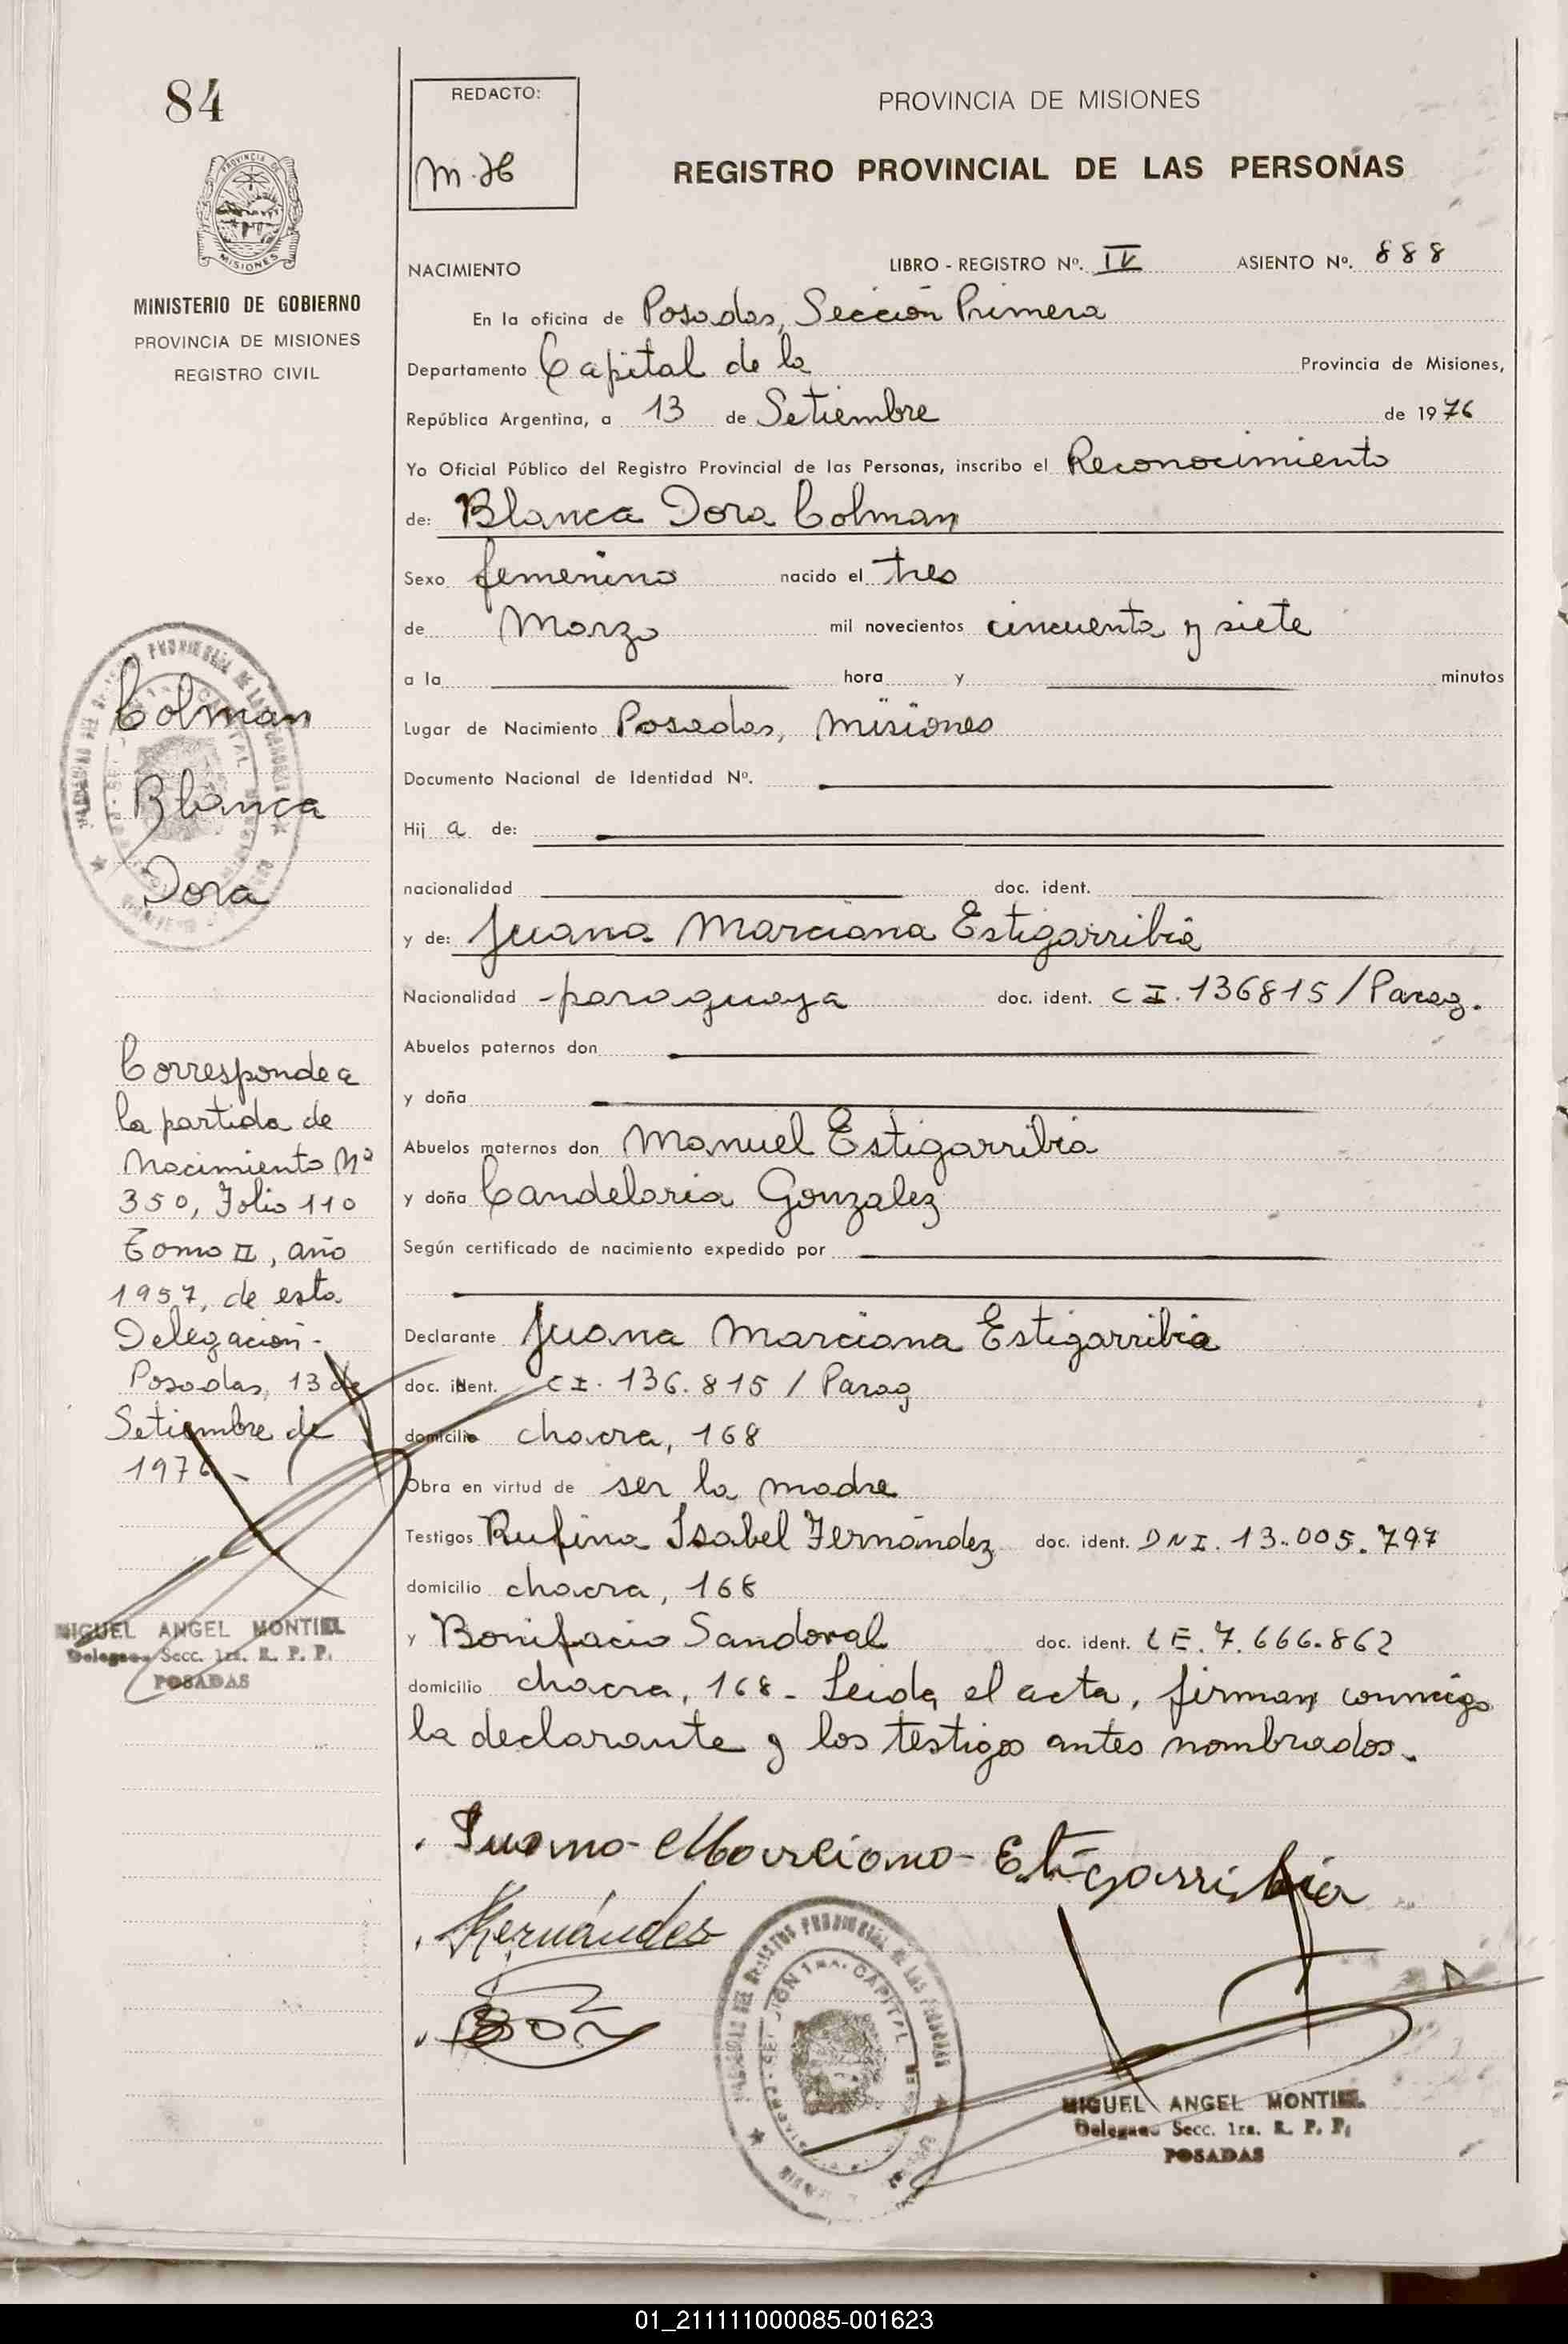 84
REDACTO:
M.H
PROVINCIA DE MISIONES
REGISTRO PROVINCIAL DE LAS PERSONAS
PROVINCIA DE MISIONES
MINISTERIO DE GOBIERNO
PROVINCIA DE MISIONES
REGISTRO CIVIL
NACIMIENTO LIBRO - REGISTRO Nº. IV ASIENTO Nº. 888
En la oficina de Posadas, Sección Primera
Departamento Capital de la Provincia de Misiones,
República Argentina, a 13 de Setiembre de 1976
Yo Oficial Público del Registro Provincial de las Personas, inscribo el Reconocimiento
de: Blanca Dora Colman
Sexo femenino nacido el tres
de Marzo mil novecientos cincuenta y siete
a la hora y minutos
Lugar de Nacimiento Posadas, Misiones
Documento Nacional de Identidad Nº.
Hij a de:
nacionalidad doc. ident.
y de: Juana Marciana Estigarribia
Nacionalidad paraguaya doc. ident. C I. 136815 / Parag.
Abuelos paternos don
y doña
Abuelos maternos don Manuel Estigarribia
y doña Candelaria Gonzalez
Según certificado de nacimiento expedido por
Declarante Juana Marciana Estigarribia
doc. ident. C I. 136.815 / Parag
domicilio chacra, 168
Obra en virtud de ser la madre
Testigos Rufina Isabel Fernández doc. ident. DNI. 13.005.797
domicilio chacra, 168
y Bonifacio Sandoval doc. ident. LE. 7.666.862
domicilio chacra, 168 - Leida el acta, firman conmigo
la declarante y los testigos antes nombrados.
Colman
Blanca
Dora
Corresponde a
la partida de
Nacimiento Nº
350, Folio 110
Tomo II, año
1957, de esta
Delegación -
Posadas, 13 de
Setiembre de
1976 -
MIGUEL ANGEL MONTIEL
Delegado Secc. 1ra. R. P. P.
POSADAS
Juana Marciana Etigarribia
MIGUEL ANGEL MONTIEL
Delegado Secc. 1ra. R. P. P.
POSADAS
01_211111000085-001623